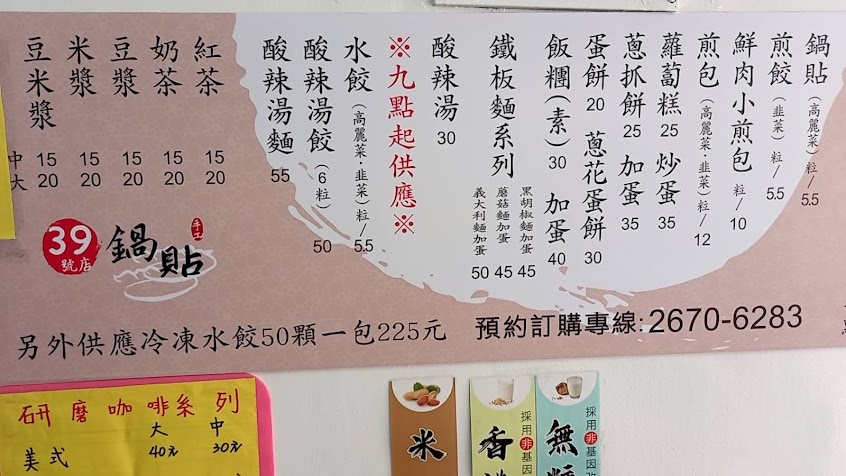 鍋貼(高麗菜)粒/5.5
煎餃(韭菜)粒/5.5
鮮肉小煎包 粒/10
煎包(高麗菜·韭菜)粒/12
蘿蔔糕25 炒蛋35
蔥抓餅25 加蛋35
蛋餅20 蔥花蛋餅30
飯糰(素)30 加蛋40
鐵板麵系列
黑胡椒麵加蛋45
蘑菇麵加蛋45
義大利麵加蛋50
酸辣湯30
※九點起供應※
水餃(高麗菜·韭菜)粒/5.5
酸辣湯餃(6粒)50
酸辣湯麵55
紅茶 15 20
奶茶 15 20
豆漿 15 20
米漿 15 20
豆米漿 中15 大20
39號店
鍋貼
手工
另外供應冷凍水餃50顆一包225元
預約訂購專線:2670-6283
研磨咖啡系列
大 中
美式 40元 30元
米
香
採用非基因
無糖
採用非基因